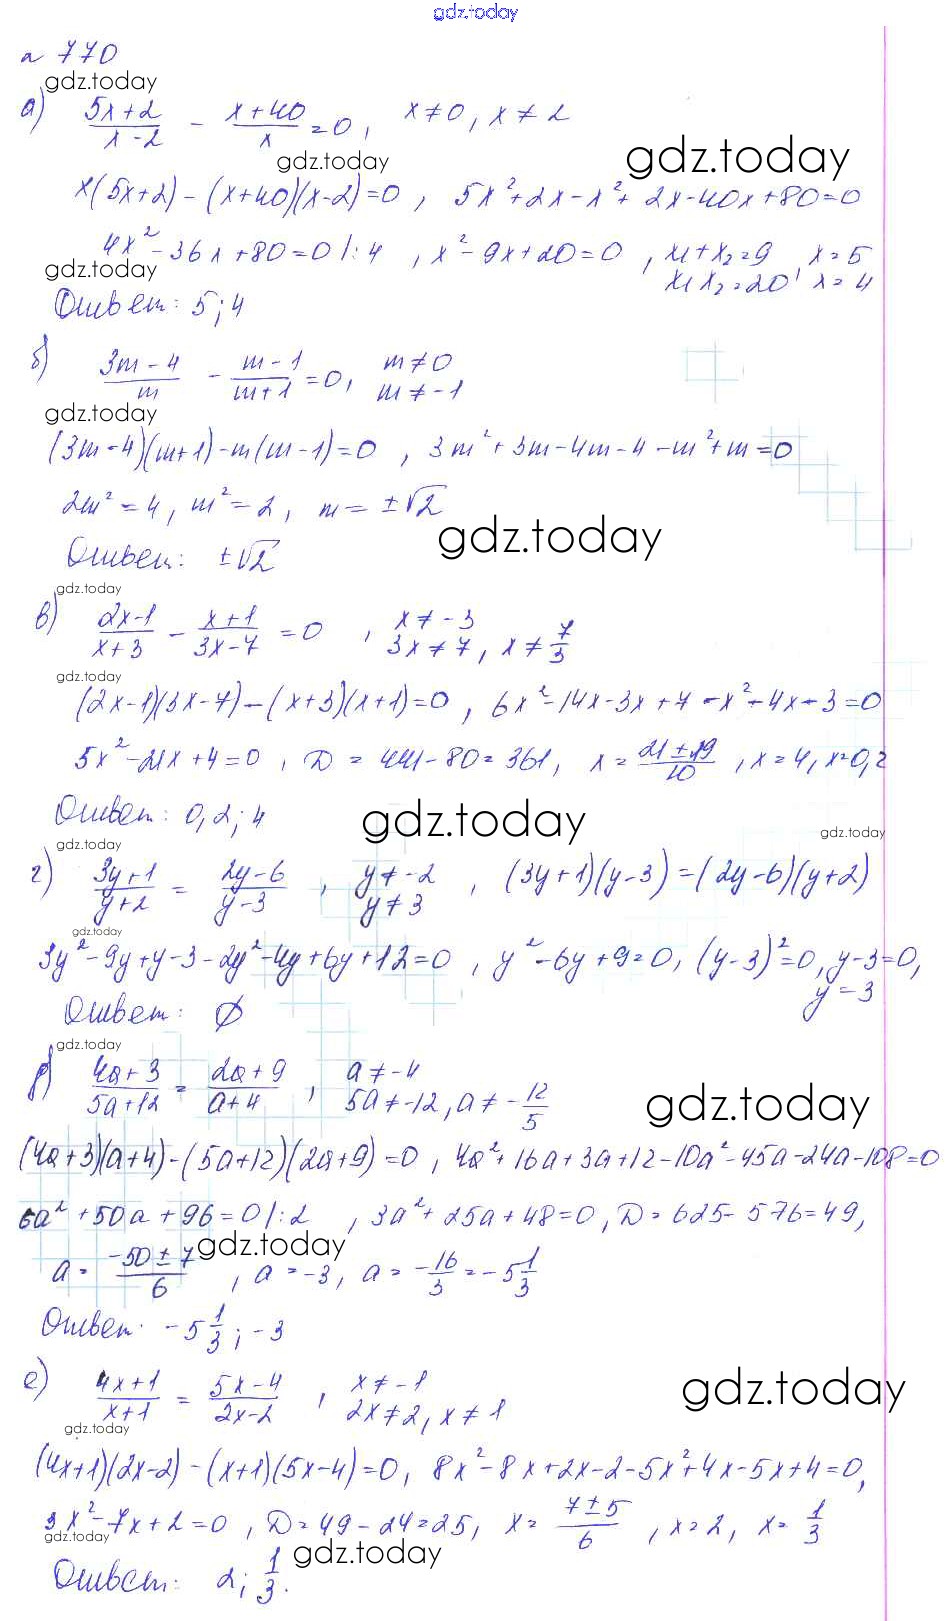 gdz.today
№ 770
gdz.today
а) (5x+2)/(x-2) - (x+40)/x = 0, x≠0, x≠2
gdz.today
gdz.today
x(5x+2)-(x+40)(x-2)=0, 5x²+2x-x²+2x-40x+80=0
4x²-36x+80=0 |:4, x²-9x+20=0, x₁+x₂=9, x=5
gdz.today
x₁x₂=20, x=4
Ответ: 5; 4
б) (3m-4)/m - (m-1)/(m+1) = 0, m≠0
m≠-1
gdz.today
(3m-4)(m+1)-m(m-1)=0, 3m²+3m-4m-4-m²+m=0
2m²=4, m²=2, m=±√2
gdz.today
Ответ: ±√2
gdz.today
в) (2x-1)/(x+3) - (x+1)/(3x-7) = 0, x≠-3
3x≠7, x≠7/3
gdz.today
(2x-1)(3x-7)-(x+3)(x+1)=0, 6x²-14x-3x+7-x²-4x-3=0
5x²-21x+4=0, D=441-80=361, x=(21±19)/10, x=4, x=0,2
Ответ: 0,2; 4
gdz.today
gdz.today
gdz.today
г) (3y+1)/(y+2) = (2y-6)/(y-3), y≠-2, (3y+1)(y-3)=(2y-6)(y+2)
y≠3
gdz.today
3y²-9y+y-3-2y²-4y+6y+12=0, y²-6y+9=0, (y-3)²=0, y-3=0,
y=3
Ответ: ∅
gdz.today
д) (4a+3)/(5a+12) = (2a+9)/(a+4), a≠-4
5a≠-12, a≠-12/5
gdz.today
(4a+3)(a+4)-(5a+12)(2a+9)=0, 4a²+16a+3a+12-10a²-45a-24a-108=0
6a²+50a+96=0 |:2, 3a²+25a+48=0, D=625-576=49,
gdz.today
a=(-50±7)/6, a=-3, a=-16/3=-5 1/3
Ответ: -5 1/3; -3
е) (4x+1)/(x+1) = (5x-4)/(2x-2), x≠-1
2x≠2, x≠1
gdz.today
gdz.today
(4x+1)(2x-2)-(x+1)(5x-4)=0, 8x²-8x+2x-2-5x²+4x-5x+4=0,
3x²-7x+2=0, D=49-24=25, x=(7±5)/6, x=2, x=1/3
gdz.today
gdz.today
Ответ: 2; 1/3.